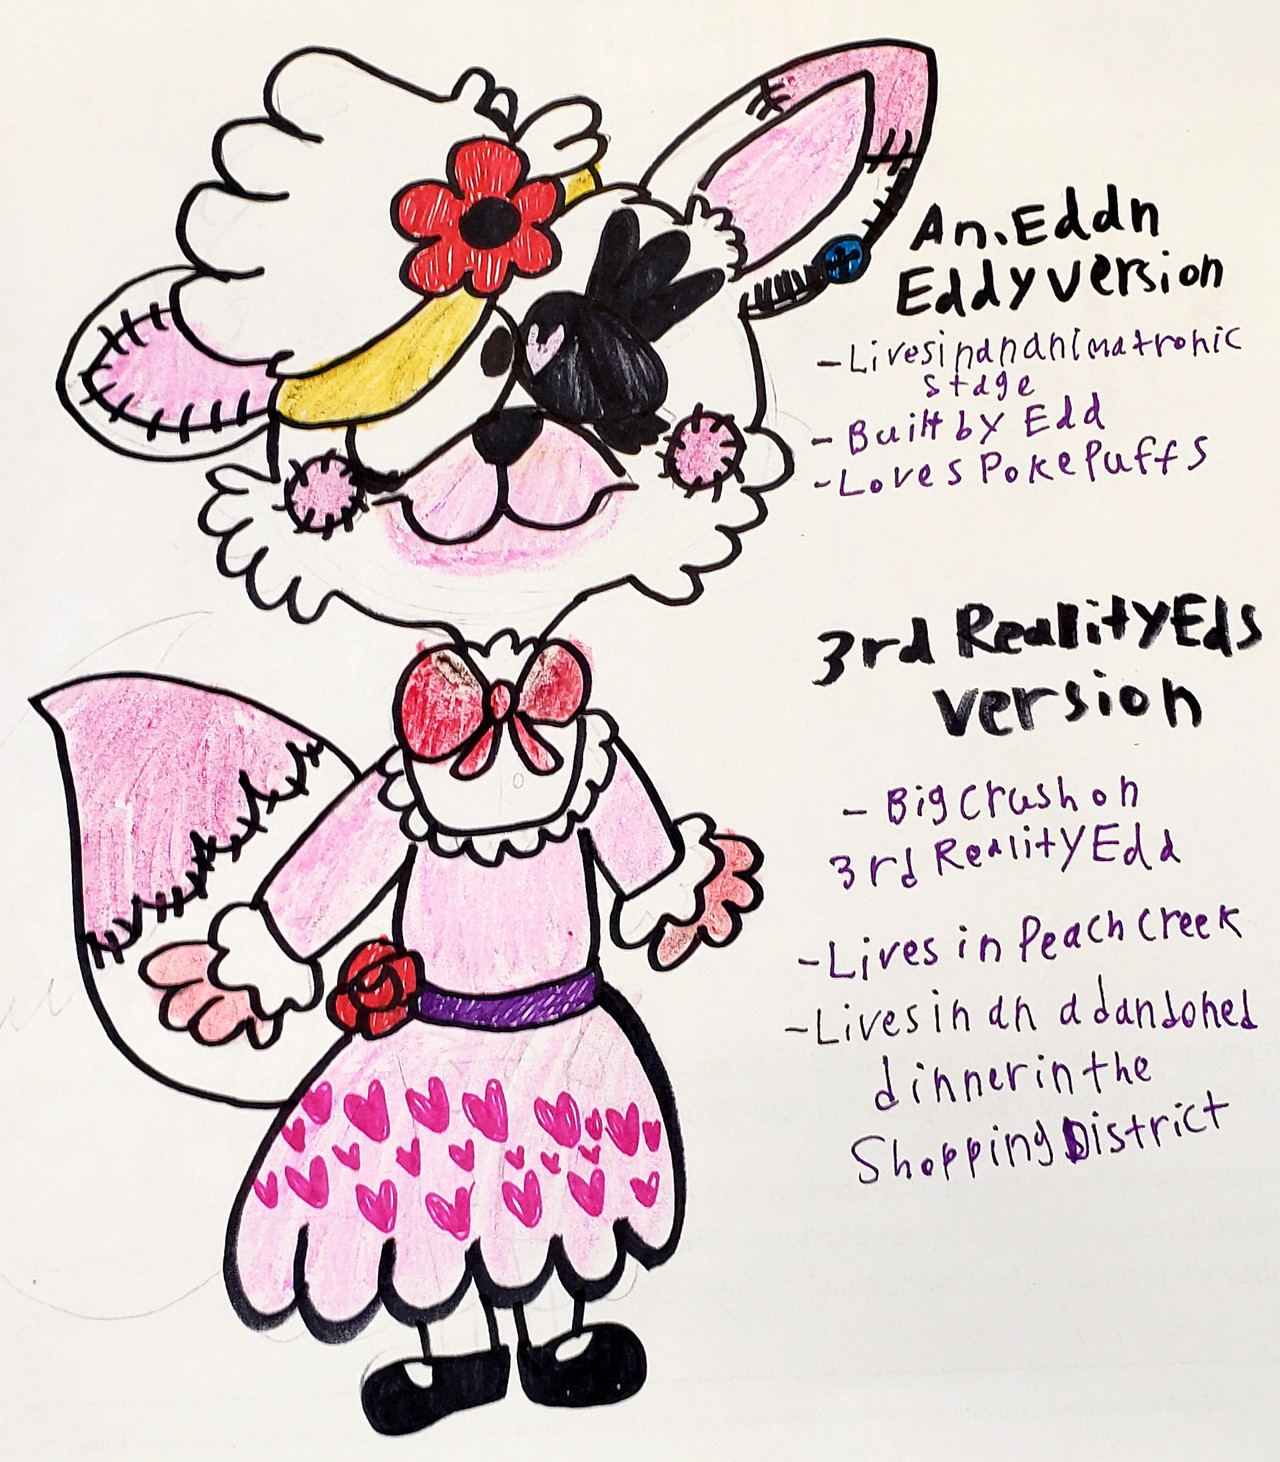 An. Eddn
Eddy version
- Lives in an animatronic
stage
- Built by Edd
- Loves Poke Puffs
3rd Reality Eds
version
- Big Crush on
3rd Reality Edd
- Lives in Peach Creek
- Lives in an abandoned
dinner in the
Shopping District